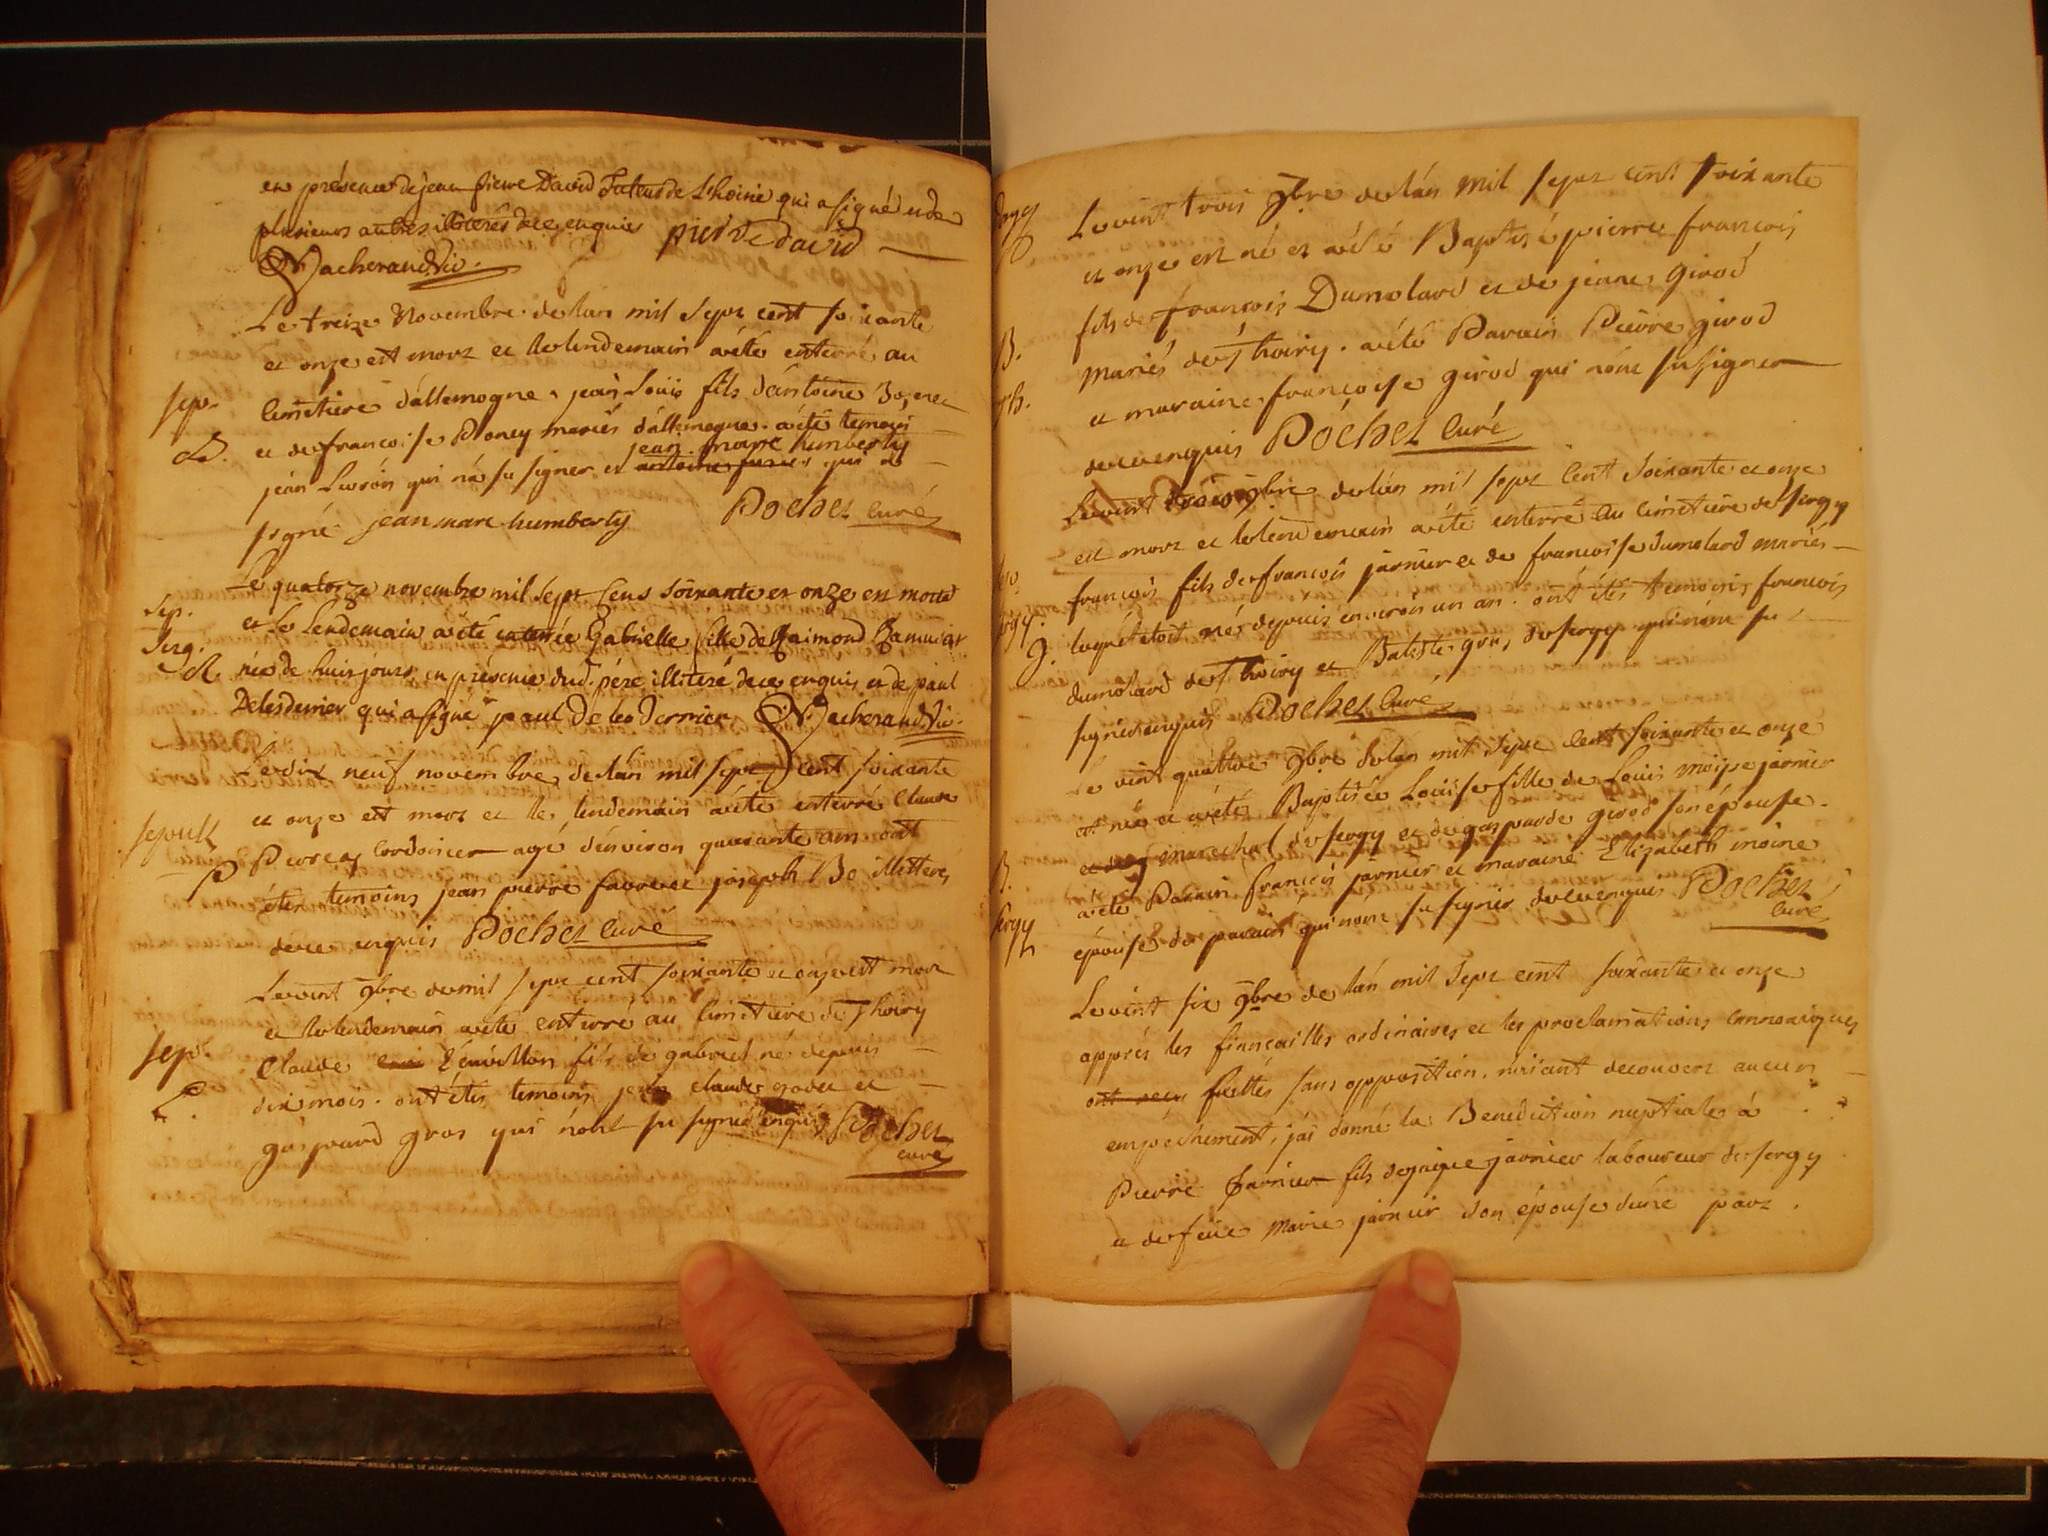 en présence de jean pierre David Tuteur de Lhoirie qui a signé et de
plusieurs autres illiterés de ce enquis pierre david
N. Jacherand Vic.
Le treize Novembre de lan mil sept cent soixante
et onze est mort et le lendemain a été enterré au
sep. cimetiere d'allemogne jean Louis fils d'antoine
et de francoise mariés d'allemogne. a été temoin
jean marc humberty
jean qui n'a su signer et qui a
signé jean marc humberty Pochet Curé
Le quatorze novembre mil sept Cens soixante et onze est morte
Sep. et le Lendemain a été enterrée Gabrielle fille de Raimond
Serg. née de huit jours en présence dud. père illiteré de ce enquis et de paul
R.
Delesderrier qui a signé paul De les Dernier N. Jacherand Vic.
Le dix neuf novembre de lan mil sept cent soixante
et onze est mort et le lendemain a été enterré Claude
sepult. cordonier agé d'environ quarante ans ont
P étés temoins jean pierre favre et joseph Bo illitteres
de ce enquis Pochet Curé
Le vint 9bre de mil sept cent soixante et onze est mort
et le lendemain a été enterré au Cimetiere de Thoiry
sep. Claude fils de gabriel né depuis
dix mois. ont étés temoins jean claude et
gaspard gros qui n'ont su signer enquis Pochet
curé
Le vint trois 9bre de lan mil sept cent soixante
et onze est né et a été Baptisé pierre francois
fils de francois Dumolard et de jeane girod
B. mariés de Thoiry. a été Parain Pierre girod
th. et maraine francoise girod qui n'ont su signer
de ce enquis Pochet Curé
Le vint trois 9bre de lan mil sept Cent Soixante et onze
est mort et le lendemain a été enterré au cimetiere de Sergy
francois fils de francois jarnier et de francoise dumolard mariés
lequel etoit né depuis environ un an. ont étés temoins francois
J. dumolard de Thoiry et Batiste gros de Sergy qui n'ont su
signer enquis Pochet Curé
Le vint quattre 9bre de lan mil sept Cent soixante et onze
est née a été Baptisée Louise fille de Louis moise jarnier
marechal de Sergy et de gasparde girod son épouse.
B. a été Parain francois jarnier et maraine Elizabeth moine
Sergy épouse du parain qui n'ont su signer de ce enquis Pochet
Curé
Le vint six 9bre de lan mil sept cent soixante et onze
apprés les fiançailles ordinaires et les proclamations cannoniques
faittes sans opposition, n'aiiant decouvert aucun
empechement, j'ai donné la Benediction nuptiale à
Pierre Jarnier fils de jaque jarnier laboureur de Sergy
et de feue Marie jarnier son épouse d'une part.